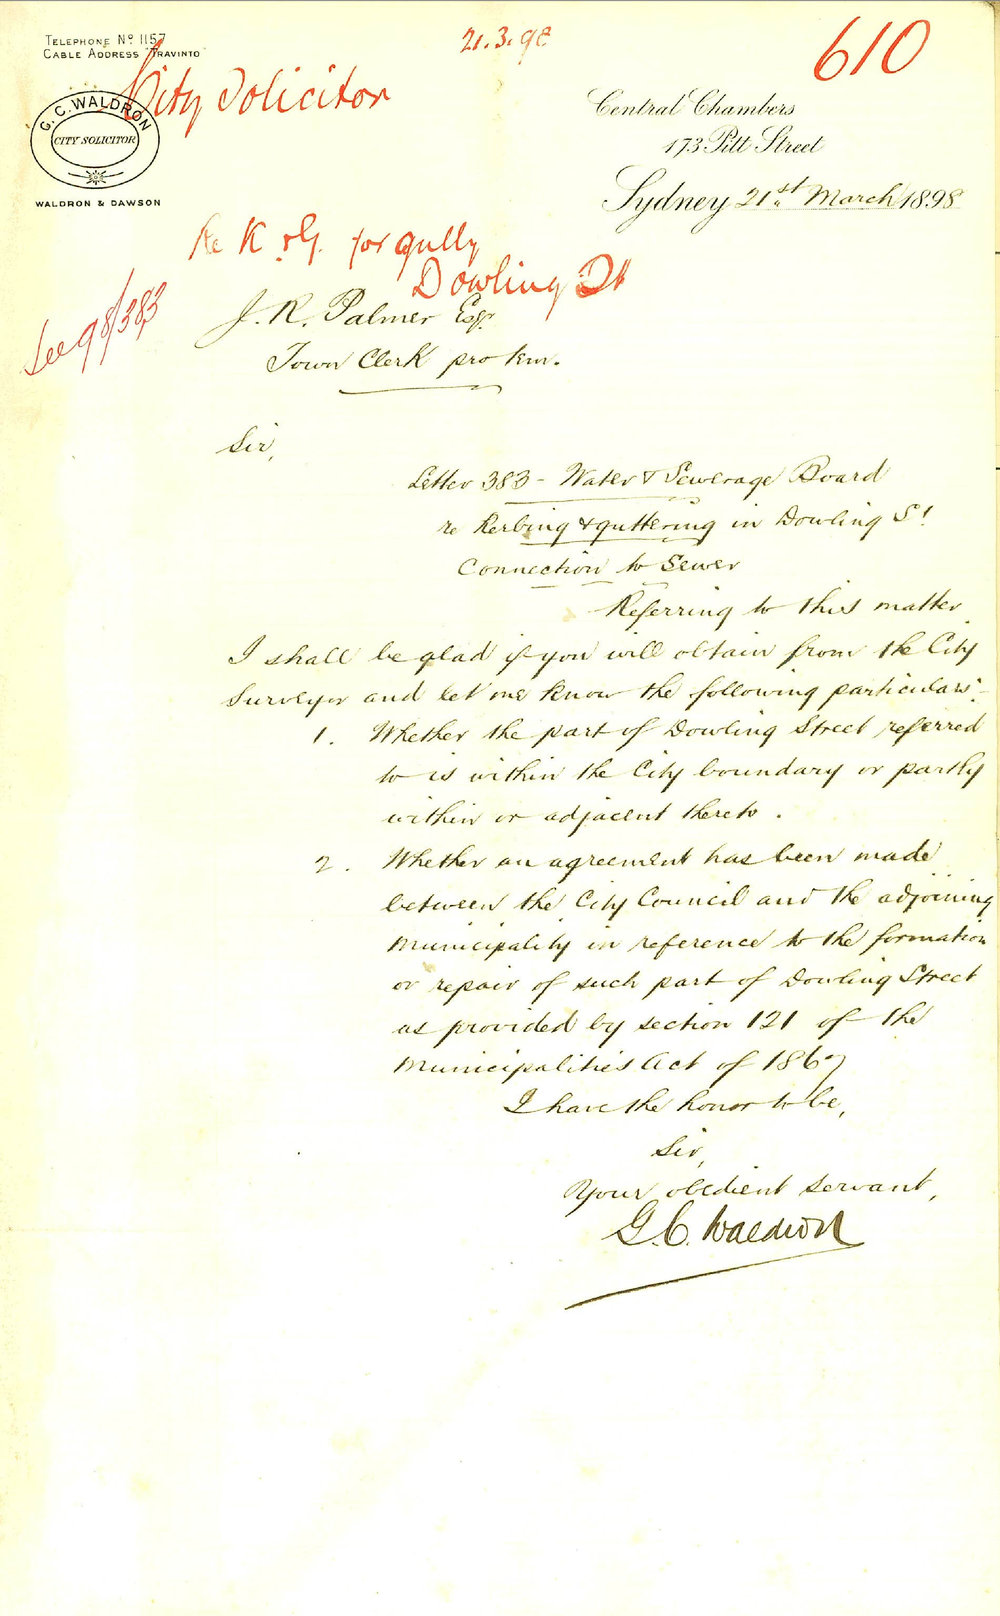 TELEPHONE No 1157
CABLE ADDRESS "TRAVINTO"
21.3.98
610
City Solicitor
G.C. WALDRON
CITY SOLICITOR
WALDRON & DAWSON
Central Chambers
173 Pitt Street
Sydney 21st March 1898
Re K & G. for gully
Dowling St
See 98/383
J. R. Palmer Esqr
Town Clerk pro tem.
Sir,
Letter 383 - Water & Sewerage Board
re Kerbing & guttering in Dowling St
Connection to Sewer
Referring to this matter
I shall be glad if you will obtain from the City
Surveyor and let me know the following particulars:-
1. Whether the part of Dowling Street referred
to is within the City boundary or partly
within or adjacent thereto.
2. Whether an agreement has been made
between the City Council and the adjoining
Municipality in reference to the formation
or repair of such part of Dowling Street
as provided by section 121 of the
Municipalities Act of 1867
I have the honor to be,
Sir,
Your obedient servant,
G. C. Waldron